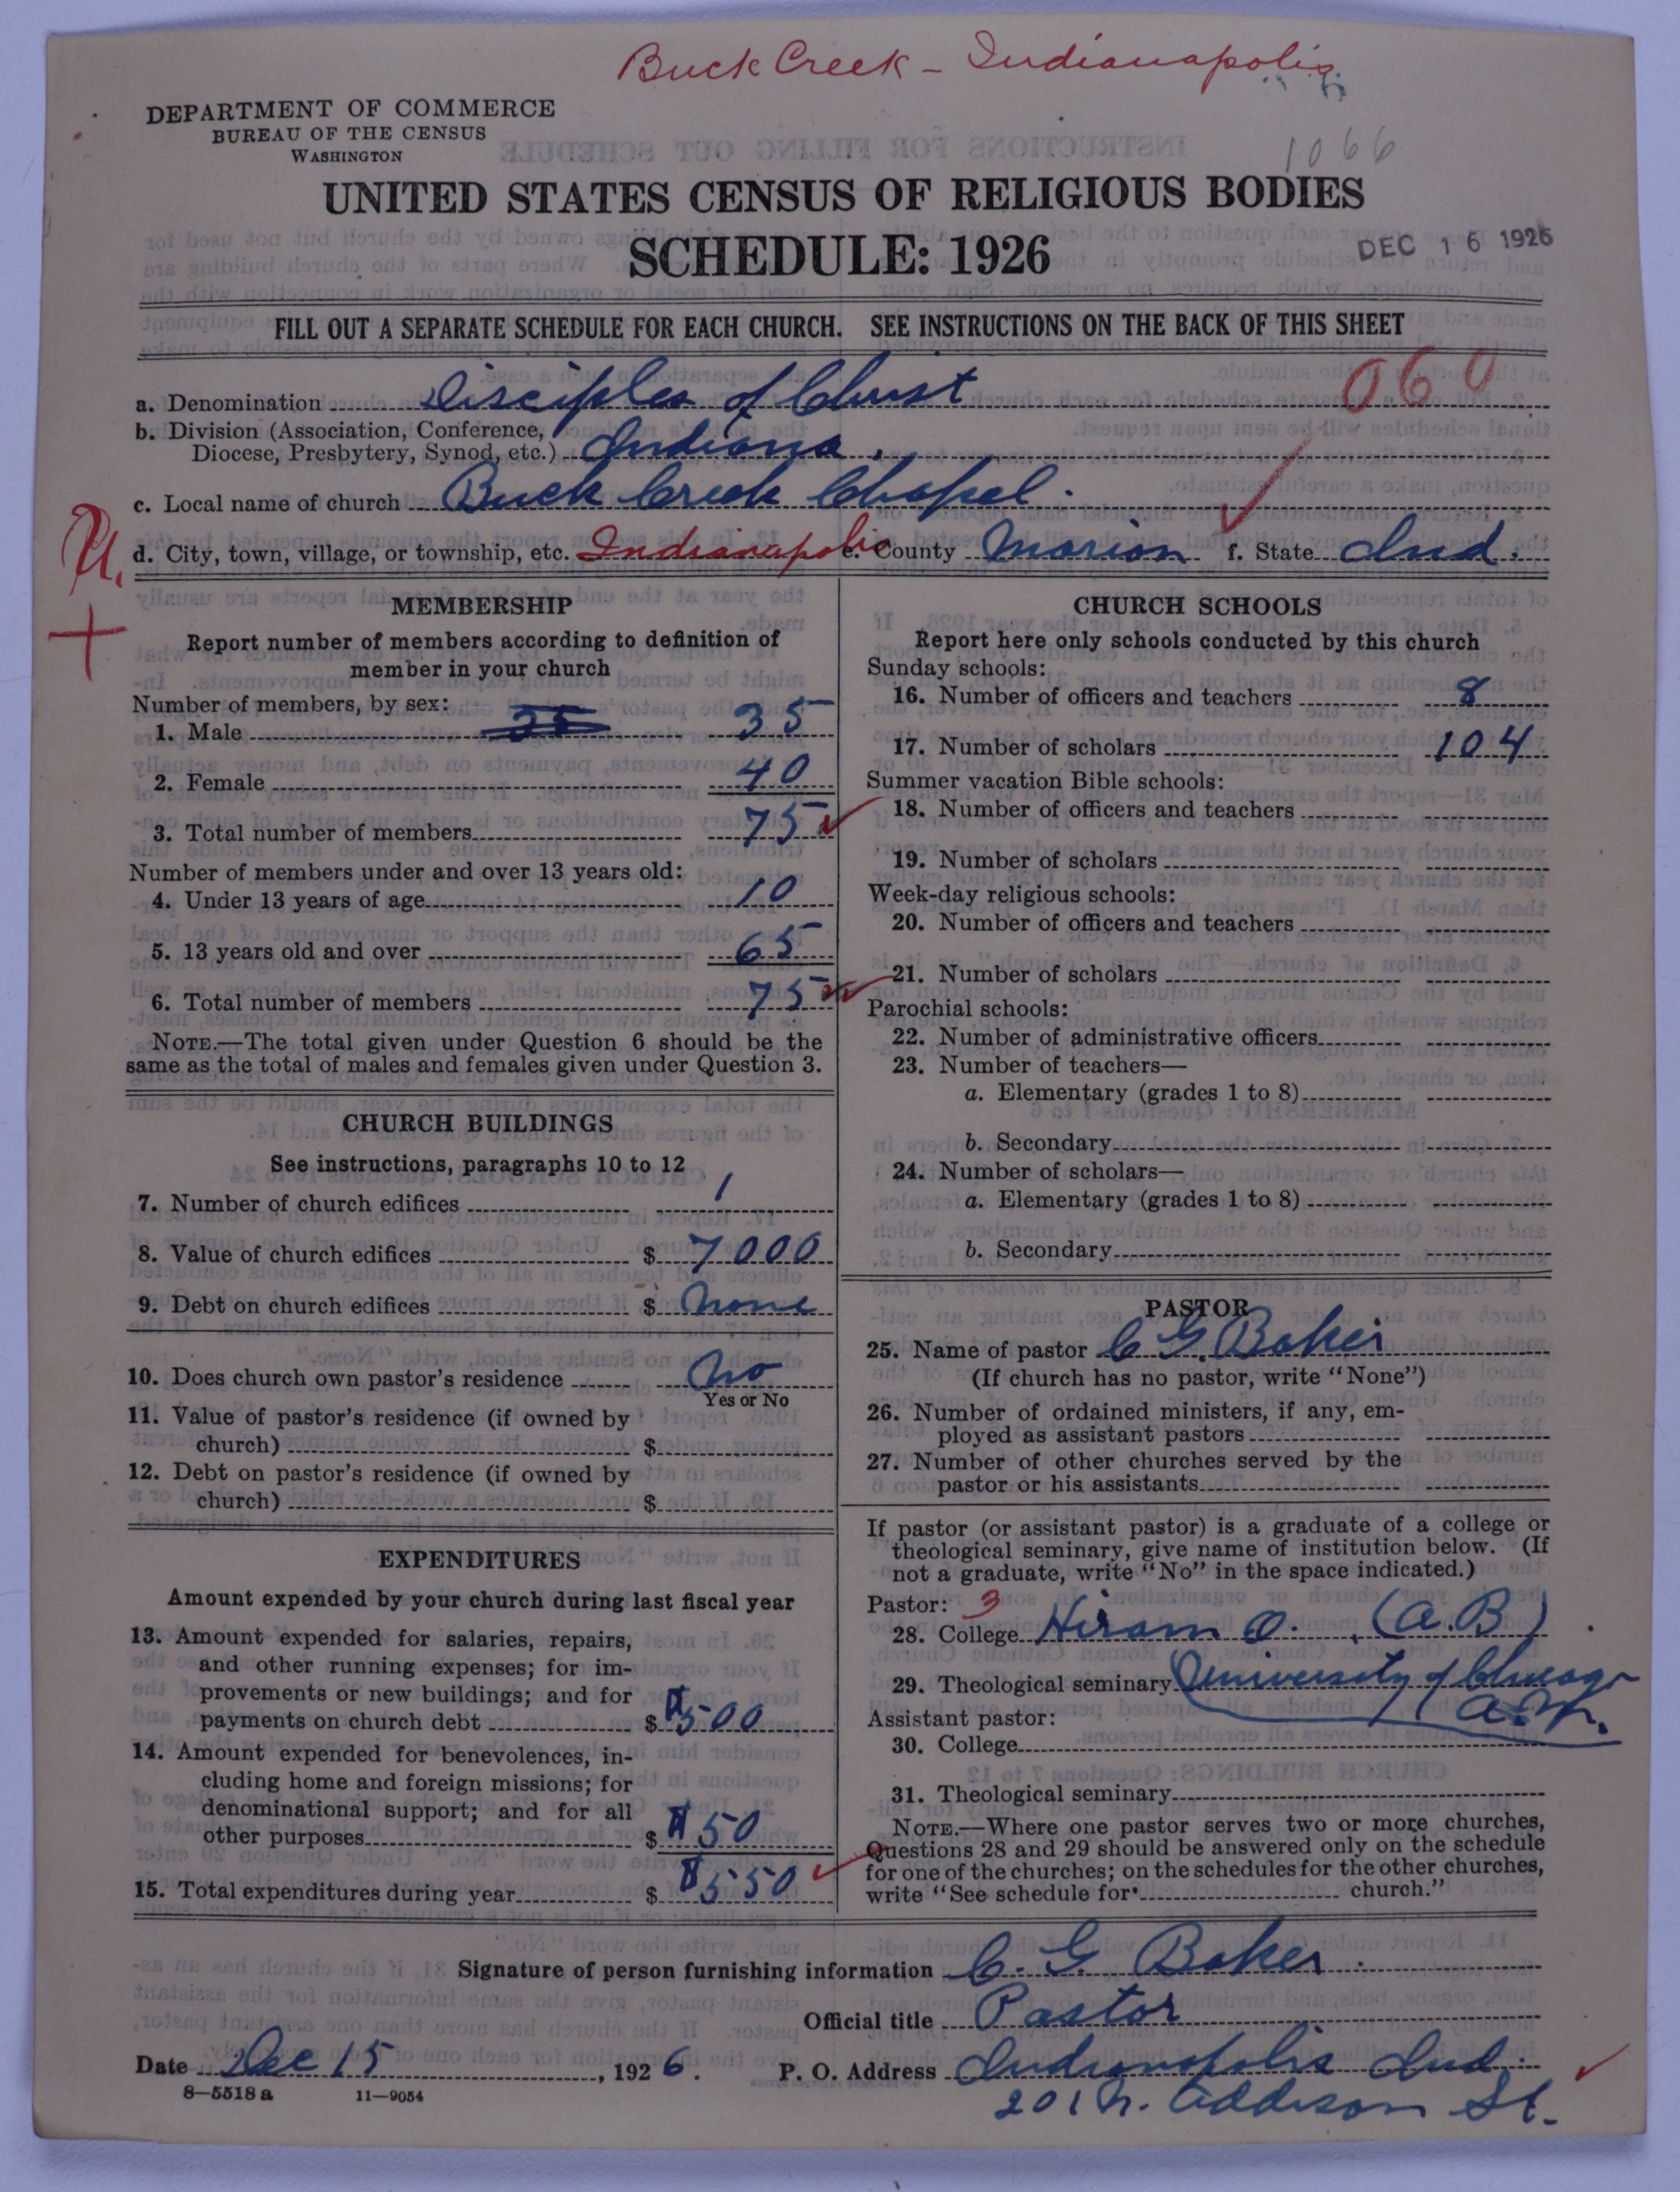 Buck Creek - Indianapolis
DEPARTMENT OF COMMERCE
BUREAU OF THE CENSUS
WASHINGTON
1066
UNITED STATES CENSUS OF RELIGIOUS BODIES
SCHEDULE: 1926
DEC 16 1926
FILL OUT A SEPARATE SCHEDULE FOR EACH CHURCH. SEE INSTRUCTIONS ON THE BACK OF THIS SHEET
060
a. Denomination Disciples of Christ
b. Division (Association, Conference,
Diocese, Presbytery, Synod, etc.) Indiana.
c. Local name of church Buck Creek Chapel.
d. City, town, village, or township, etc. Indianapolis e. County Marion f. State Ind.
MEMBERSHIP
Report number of members according to definition of
member in your church
Number of members, by sex:
1. Male 35 35
2. Female 40
3. Total number of members 75
Number of members under and over 13 years old:
4. Under 13 years of age 10
5. 13 years old and over 65
6. Total number of members 75
NOTE.—The total given under Question 6 should be the
same as the total of males and females given under Question 3.
CHURCH BUILDINGS
See instructions, paragraphs 10 to 12
7. Number of church edifices 1
8. Value of church edifices $ 7000
9. Debt on church edifices $ none
10. Does church own pastor's residence No
Yes or No
11. Value of pastor's residence (if owned by
church) $
12. Debt on pastor's residence (if owned by
church) $
EXPENDITURES
Amount expended by your church during last fiscal year
13. Amount expended for salaries, repairs,
and other running expenses; for im-
provements or new buildings; and for
payments on church debt $ $500
14. Amount expended for benevolences, in-
cluding home and foreign missions; for
denominational support; and for all
other purposes $ $50
15. Total expenditures during year $ $550
CHURCH SCHOOLS
Report here only schools conducted by this church
Sunday schools:
16. Number of officers and teachers 8
17. Number of scholars 104
Summer vacation Bible schools:
18. Number of officers and teachers
19. Number of scholars
Week-day religious schools:
20. Number of officers and teachers
21. Number of scholars
Parochial schools:
22. Number of administrative officers
23. Number of teachers—
a. Elementary (grades 1 to 8)
b. Secondary
24. Number of scholars—
a. Elementary (grades 1 to 8)
b. Secondary
PASTOR
25. Name of pastor C G. Baker
(If church has no pastor, write "None")
26. Number of ordained ministers, if any, em-
ployed as assistant pastors
27. Number of other churches served by the
pastor or his assistants
If pastor (or assistant pastor) is a graduate of a college or
theological seminary, give name of institution below. (If
not a graduate, write "No" in the space indicated.)
Pastor: 3
28. College Hiram O. (A.B)
29. Theological seminary University of Chicago
A.M.
Assistant pastor:
30. College
31. Theological seminary
NOTE.—Where one pastor serves two or more churches,
Questions 28 and 29 should be answered only on the schedule
for one of the churches; on the schedules for the other churches,
write "See schedule for church."
Signature of person furnishing information C. G. Baker.
Official title Pastor
Date Dec 15, 1926. P. O. Address Indianapolis Ind.
8—5518a 11—9054
201 N. Addison St.